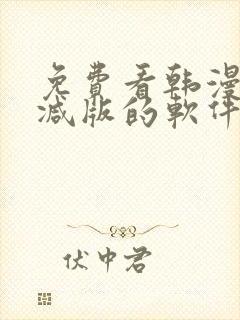 免費看韩漫
减版的軟件
伏中君